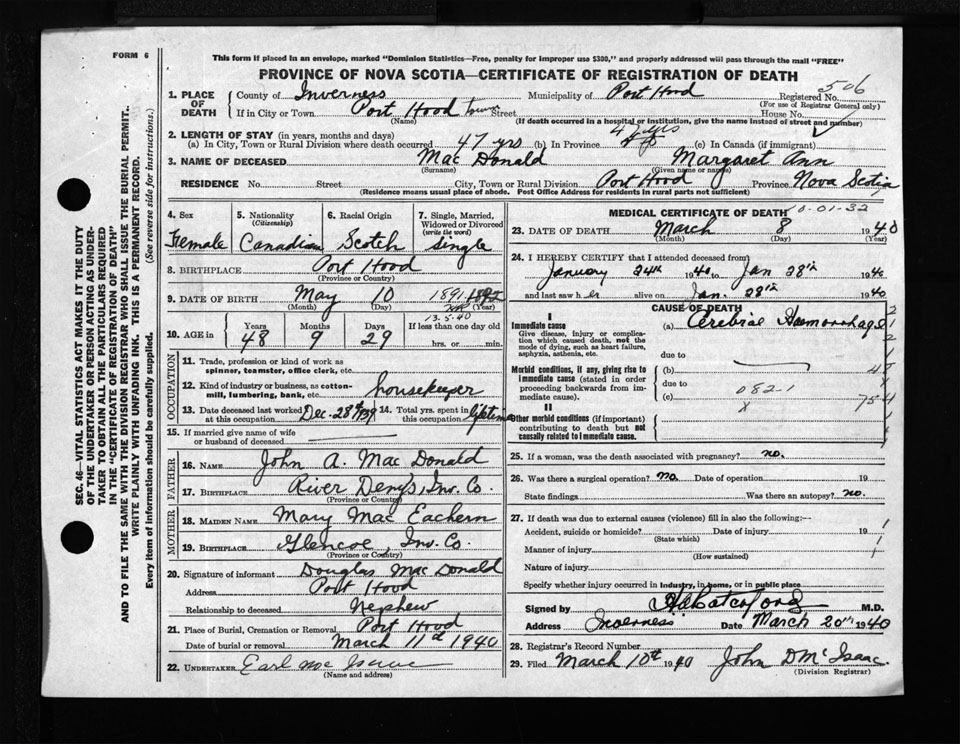 FORM 6
This form if mailed in an envelope, marked "Dominion Statistics—Free, penalty for improper use $300," and properly addressed will pass through the mail "FREE"
PROVINCE OF NOVA SCOTIA—CERTIFICATE OF REGISTRATION OF DEATH
506
1. PLACE OF DEATH County of Inverness Municipality of Port Hood Registered No.
(For use of Registrar General only)
If in City or Town Port Hood town Street House No.
(Name) (If death occurred in a hospital or institution, give the name instead of street and number)
2. LENGTH OF STAY (in years, months and days)
(a) In City, Town or Rural Division where death occurred 47 yrs (b) In Province (c) In Canada (if immigrant)
3. NAME OF DECEASED Mac Donald Margaret Ann
(Surname) (Given name or names)
RESIDENCE No. Street City, Town or Rural Division Port Hood Province Nova Scotia
(Residence means usual place of abode. Post Office Address for residents in rural parts not sufficient)
4. Sex Female
5. Nationality (Citizenship) Canadian
6. Racial Origin Scotch
7. Single, Married, Widowed or Divorced (write the word) Single
8. BIRTHPLACE Port Hood
(Province or Country)
9. DATE OF BIRTH May 10 1891 1892
(Month) (Day) (Year)
13.5.40
10. AGE in Years Months Days If less than one day old
48 9 29 hrs. or min.
OCCUPATION
11. Trade, profession or kind of work as spinner, teamster, office clerk, etc.
12. Kind of industry or business, as cotton-mill, lumbering, bank, etc. housekeeper
13. Date deceased last worked at this occupation Dec. 28th 1939 14. Total yrs. spent in this occupation lifetime
15. If married give name of wife or husband of deceased
FATHER
16. NAME John A. Mac Donald
17. BIRTHPLACE River Denys, Inv. Co.
(Province or Country)
MOTHER
18. MAIDEN NAME Mary Mac Eachern
19. BIRTHPLACE Glencoe, Inv. Co.
(Province or Country)
20. Signature of informant Douglas Mac Donald
Address Port Hood
Relationship to deceased Nephew
21. Place of Burial, Cremation or Removal Port Hood
Date of burial or removal March 11th 1940
22. UNDERTAKER Earl Mc Isaac
(Name and address)
MEDICAL CERTIFICATE OF DEATH
10-01-32
23. DATE OF DEATH March 8 1940
(Month) (Day) (Year)
24. I HEREBY CERTIFY that I attended deceased from
January 24th 1940 to Jan 28th 1940
and last saw her alive on Jan. 28th 1940
CAUSE OF DEATH
I
Immediate cause (a) Cerebral Haemorrhage
Give disease, injury or complication which caused death, not the mode of dying, such as heart failure, asphyxia, asthenia, etc.
due to
Morbid conditions, if any, giving rise to immediate cause (stated in order proceeding backwards from immediate cause) (b)
due to
(c)
082-1
x
II
Other morbid conditions (if important) contributing to death but not causally related to immediate cause.
25. If a woman, was the death associated with pregnancy? no.
26. Was there a surgical operation? no. Date of operation 19
State findings Was there an autopsy? no.
27. If death was due to external causes (violence) fill in also the following:—
Accident, suicide or homicide? Date of injury 19
(State which)
Manner of injury
(How sustained)
Nature of injury
Specify whether injury occurred in industry, in home, or in public place
Signed by M.D.
Address Inverness Date March 20th 1940
28. Registrar's Record Number
29. Filed March 10th 1940 John D Mc Isaac
(Division Registrar)
SEC. 46—VITAL STATISTICS ACT MAKES IT THE DUTY
OF THE UNDERTAKER OR PERSON ACTING AS UNDER-
TAKER TO OBTAIN ALL THE PARTICULARS REQUIRED
IN THE "CERTIFICATE OF REGISTRATION OF DEATH"
AND TO FILE THE SAME WITH THE DIVISION REGISTRAR WHO SHALL ISSUE THE BURIAL PERMIT.
WRITE PLAINLY WITH UNFADING INK. THIS IS A PERMANENT RECORD.
Every item of information should be carefully supplied. (See reverse side for instructions.)